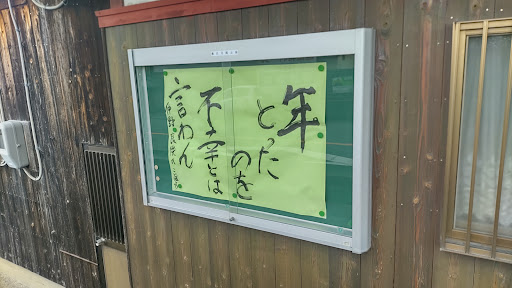 年
とった
のを
不幸とは
言わん